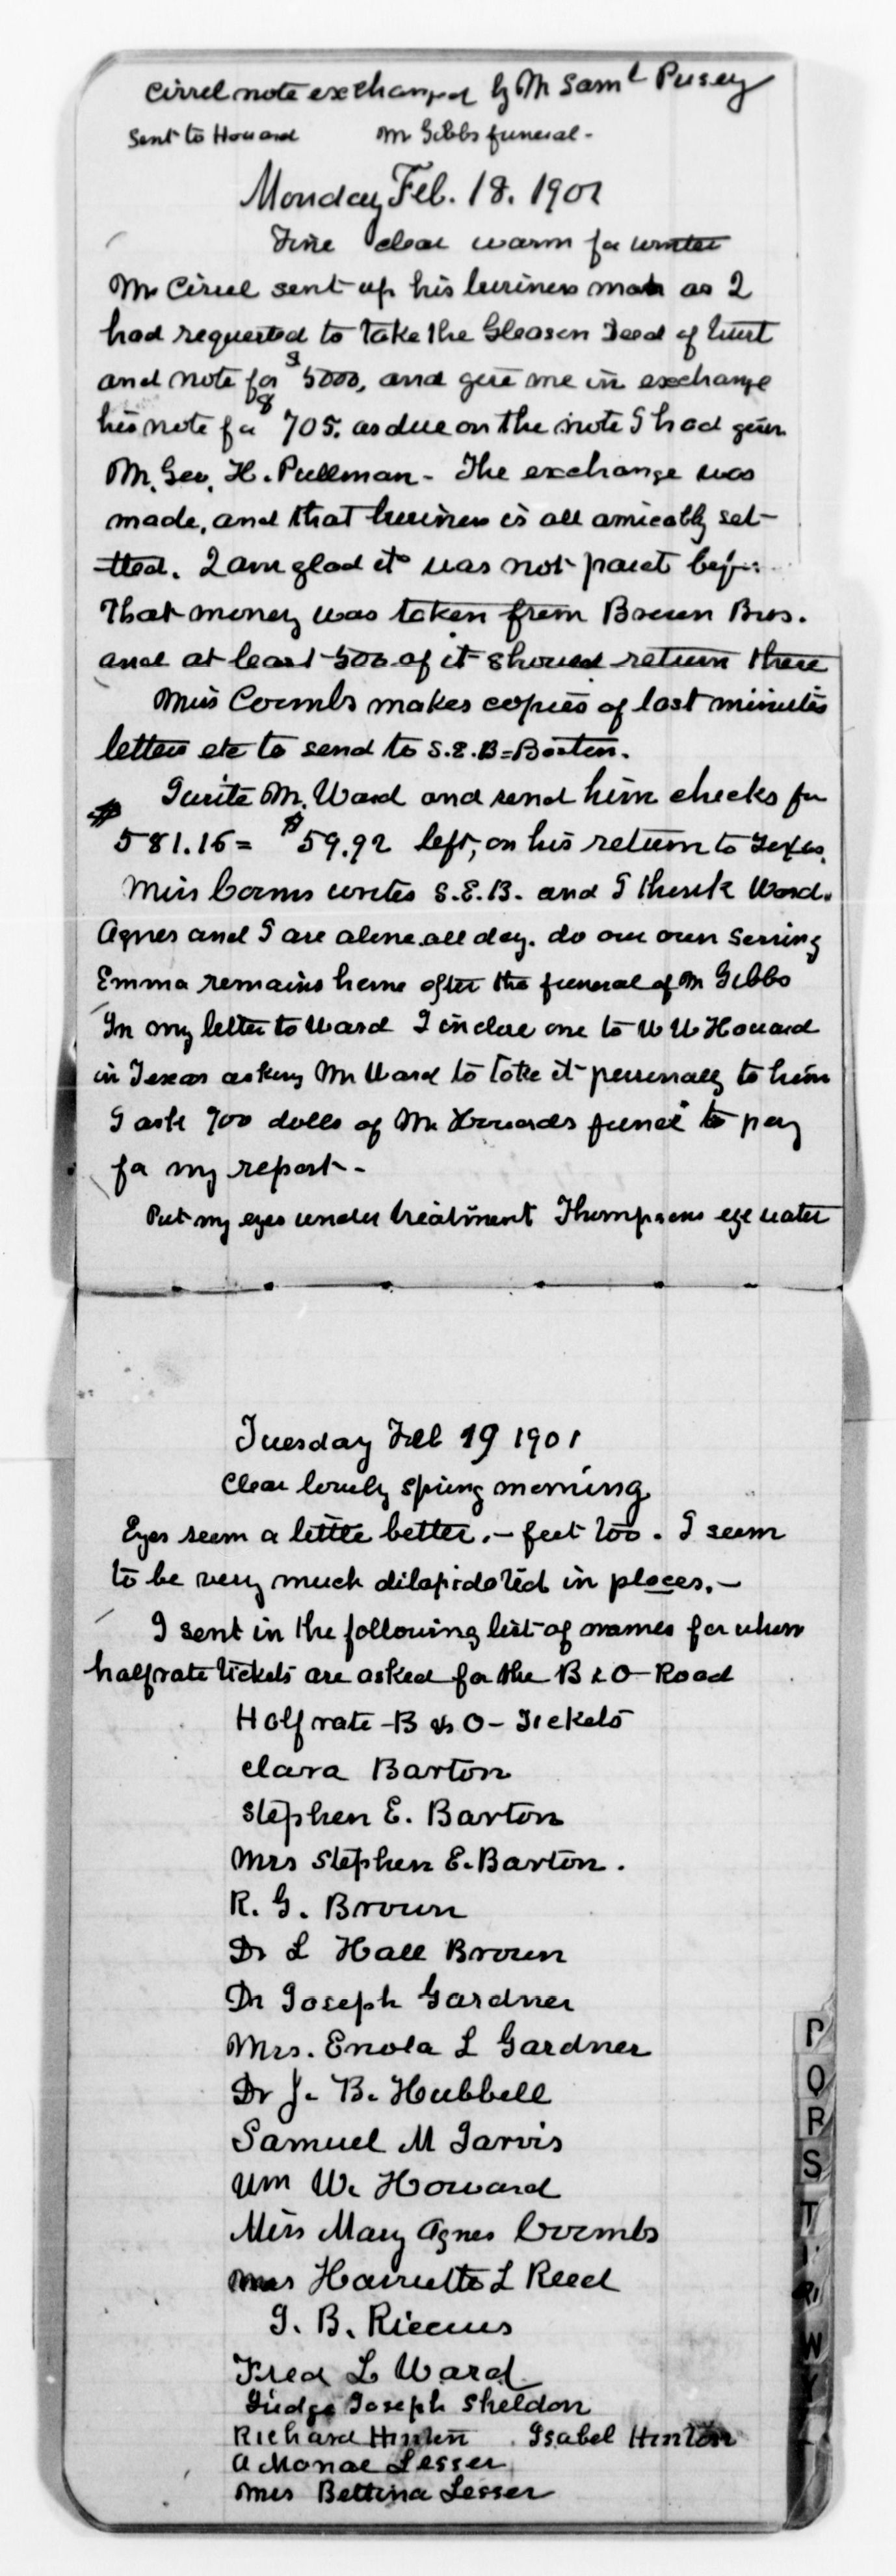 Cirrel note exchanged by Mr Saml Pusey
Sent to Howard Mr Gibbs funeral -
Monday Feb. 18. 1901
Fine clear warm for winter
Mr Cirrel sent up his business man as I
had requested to take the Gleason Deed of trust
and note for $5000, and give me in exchange
his note for $705. as due on the note I had given
Mr. Geo. H. Pullman - The exchange was
made, and that business is all amicably set-
tled. I am glad it was not paid
That money was taken from Brown Bros.
and at least 500 of it should return there
Miss Coombs makes copies of last minutes
letters etc to send to S.E.B = Boston.
I write Mr. Ward and send him checks for
$581.16 = $59.92 left, on his return to Texas.
Miss Cooms writes S.E.B. and I think Ward.
Agnes and I are alone all day. do our own serving
Emma remains home after the funeral of Mr Gibbs
In my letter to Ward I inclose one to W W Howard
in Texas asking Mr Ward to take it personally to him
I ask 700 dolls of Mr Howards fund to pay
for my report -
Put my eyes under treatment Thompsons eye water
Tuesday Feb 19 1901
Clear lovely spring morning
Eyes seem a little better. - feet too. I seem
to be very much dilapidated in places. -
I sent in the following list of names for whom
half rate tickets are asked for the B & O - Road
Half rate - B & O - Tickets
Clara Barton
Stephen E. Barton
Mrs Stephen E. Barton.
R. G. Brown
Dr L Hall Brown
Dr Joseph Gardner
Mrs. Enola L Gardner
Dr J. B. Hubbell
Samuel M Jarvis
Wm W. Howard
Miss Mary Agnes Coombs
Mrs Harriette L Reed
J. B. Riccius
Fred L Ward
Judge Joseph Sheldon
Richard Hinton Isabel Hinton
A Monae Lesser
Mrs Bettina Lesser
P
Q
R
S
T
W
Y